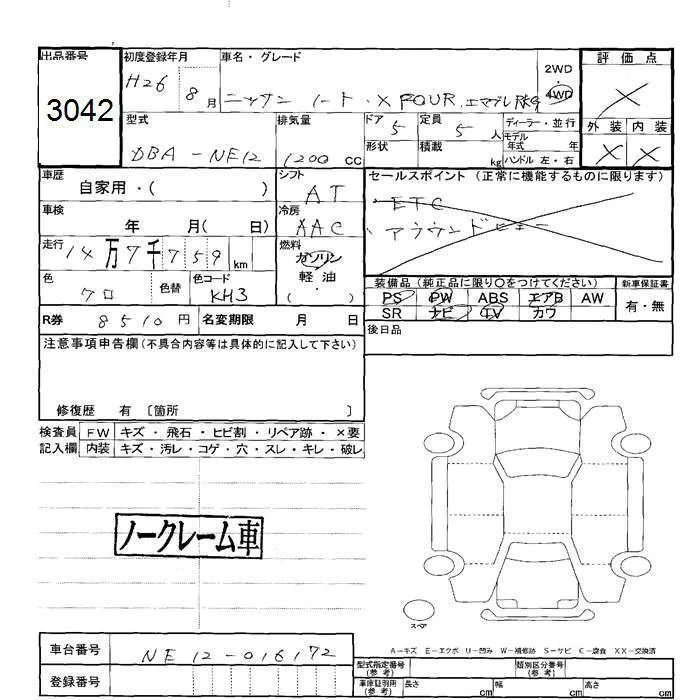 出品番号 初度登録年月 車名・グレード 2WD・4WD 評価点
3042 H26 8月 ニッサン ノート・X FOUR エマブレ PKG ×
型式 排気量 ドア 5 定員 5人 ディーラー・並行 外装 内装
DBA-NE12 1200cc 形状 積載 kg モデル年式 年 ハンドル 左・右 × ×
車歴 シフト セールスポイント (正常に機能するものに限ります)
自家用・( ) AT ・ETC
車検 冷房 ・アラウンドビュー
年 月( 日) AAC
走行 燃料
14万7千759km ガソリン・軽油・( )
色 色替 色コード 装備品(純正品に限り○をつけてください) 新車保証書
クロ KH3 PS PW ABS エアB AW 有・無
SR ナビ TV カワ
R券 8510円 名変期限 月 日 後日品
注意事項申告欄(不具合内容等は具体的に記入して下さい)
修復歴 有 〔箇所 〕
検査員 FW キズ・飛石・ヒビ割・リペア跡・×要
記入欄 内装 キズ・汚レ・コゲ・穴・スレ・キレ・破レ
ノークレーム車
スペア
車台番号 NE12-016172
A-キズ E-エクボ U-凹み W-補修跡 S-サビ C-腐食 XX-交換済
型式指定番号(参考) 類別区分番号(参考)
登録番号 車庫証明用(参考) 長さ cm 幅 cm 高さ cm